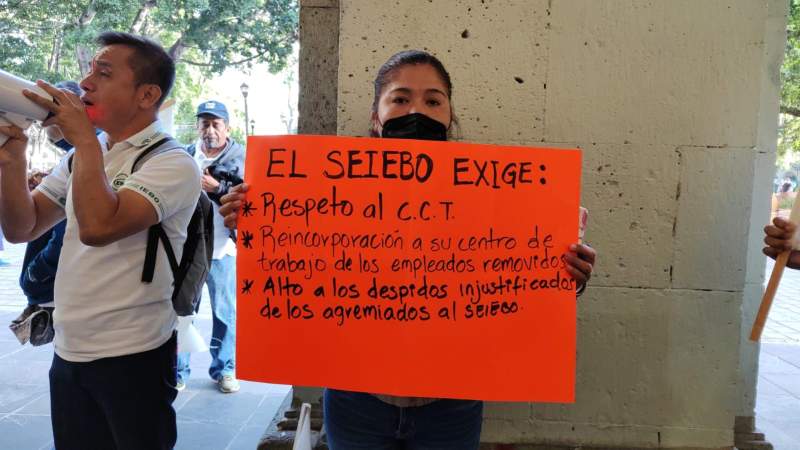 EL SEIEBO EXIGE:
* Respeto al C.C.T.
* Reincorporación a su centro de
trabajo de los empleados removidos
* Alto a los despidos injustificados
de los agremiados al SEIEBO.
SEIEBO